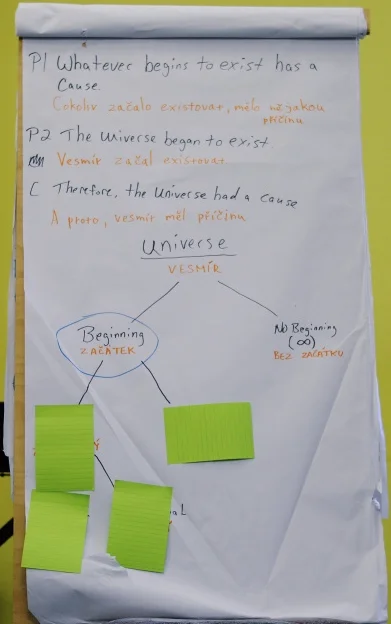 P1 Whatever begins to exist has a
Cause
Cokoliv začalo existovat, mělo nějakou
příčinu
P2 The Universe began to exist
Vesmír začal existovat
C Therefore, the Universe had a cause
A proto, vesmír měl příčinu
Universe
VESMÍR
Beginning
ZAČÁTEK
No Beginning
(∞)
BEZ ZAČÁTKU